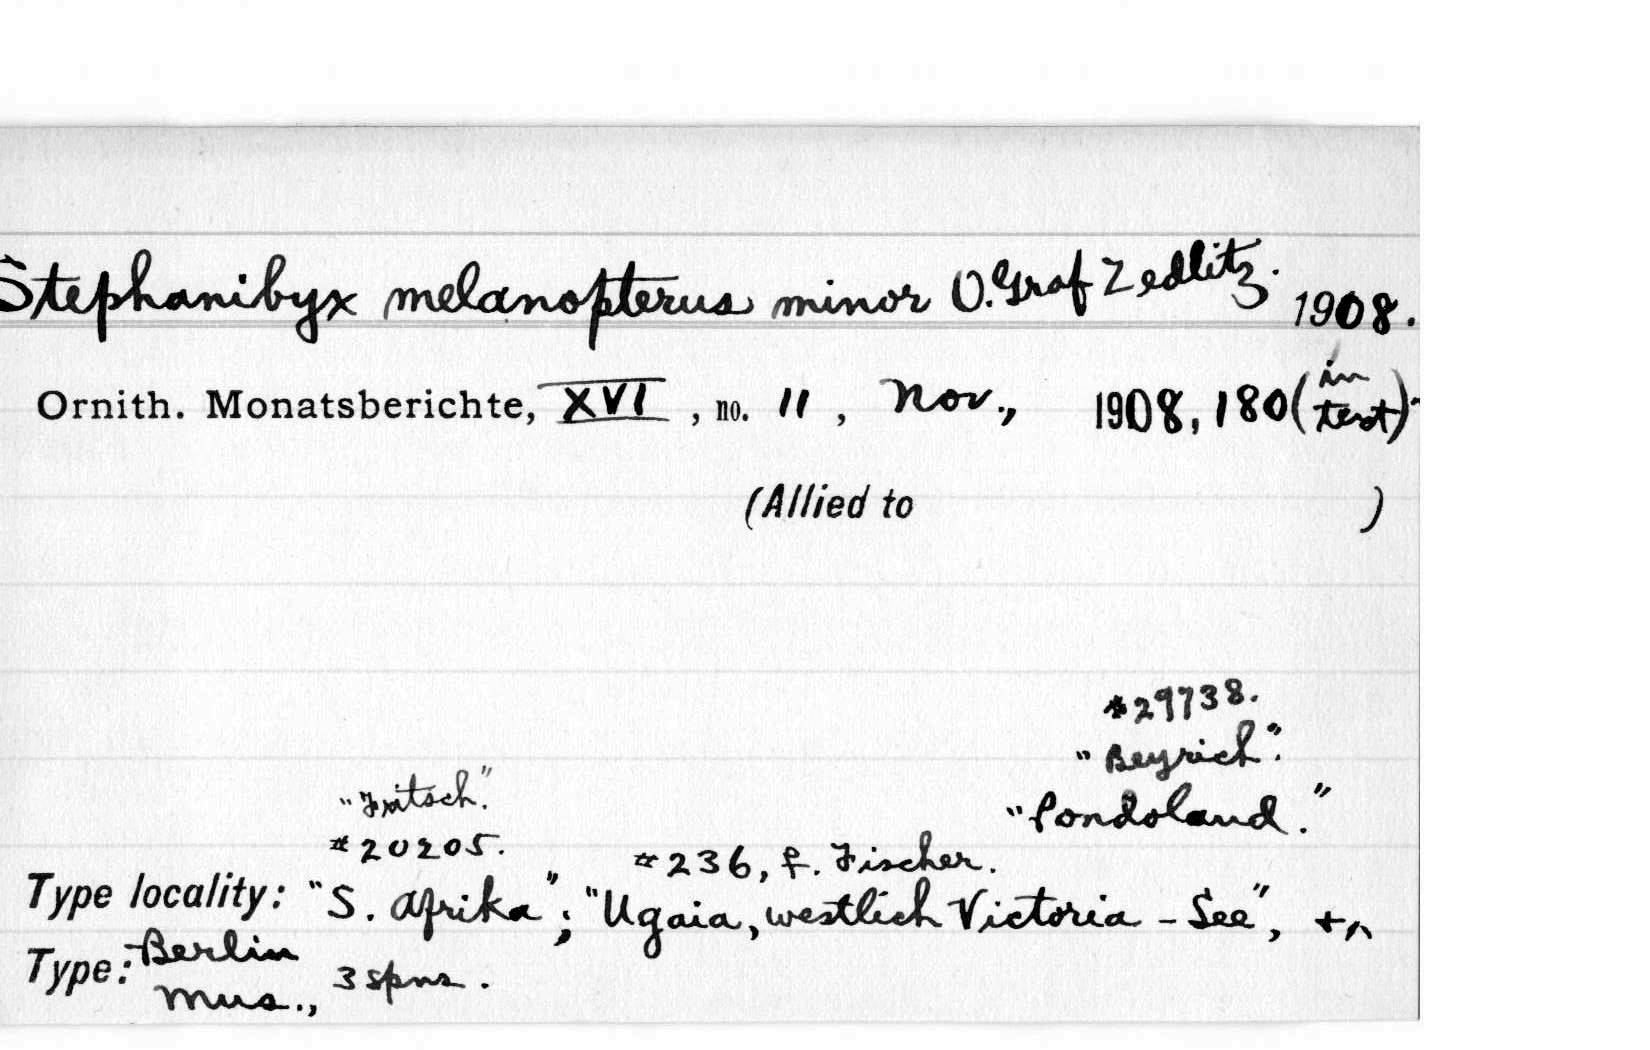 Stephanibyx melanopterus minor O. Graf Zedlitz. 1908.
Ornith. Monatsberichte, XVI, no. 11, Nov., 1908, 180 (in text).
(Allied to )
#29738.
"Beyrich".
"Pondoland."
"Fritsch."
#20205.
#236, ♀. Fischer.
Type locality: "S. Afrika"; "Ugaia, westlich Victoria-See", + ^
Type: Berlin Mus., 3 spns.